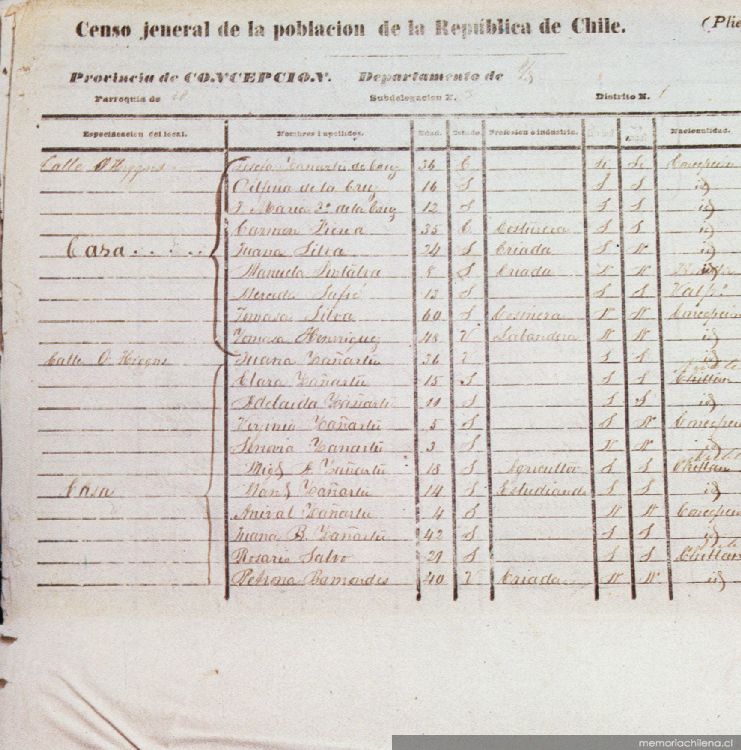 Censo jeneral de la poblacion de la República de Chile. (Plie
Provincia de CONCEPCION. Departamento de
Parroquia de Subdelegacion N. Distrito N. 1
Especificacion del local. Nombres i apellidos. Edad. Estado. Profesion o industria. Nacionalidad.
Calle O'Higgins Zañartu de Cruz 36 C Si Si Concepcion
Delfina de la Cruz 16 S S S id
J. Maria 2º de la Cruz 12 S S S id
Carmen 35 C Costurera S S id
Casa Juana Silva 24 S Criada S N id
Manuela 8 S Criada N N
Mercedes 13 S S S Valpº
Tomasa Silva 60 S Cosinera N N Concepcion
Tomasa Henriquez 48 V Labandera N N id
Calle O'Higgins Juana Zañartu 36 V S S id
Clara Zañartu 15 S S S Chillan
Adelaida Zañartu 11 S S S id
Virginia Zañartu 5 S S N Concepcion
Zañartu 3 S N N id
Casa Migl A Zañartu 18 S Agricultor S S Chillan
Manl Zañartu 14 S Estudiante S S id
Anival Zañartu 4 S N N Concepcion
Juana B. Zañartu 42 S S S id
Rosario Salvo 29 S S S Chillan
Petrona Bamondes 40 V Criada N N id
memoriachilena.cl